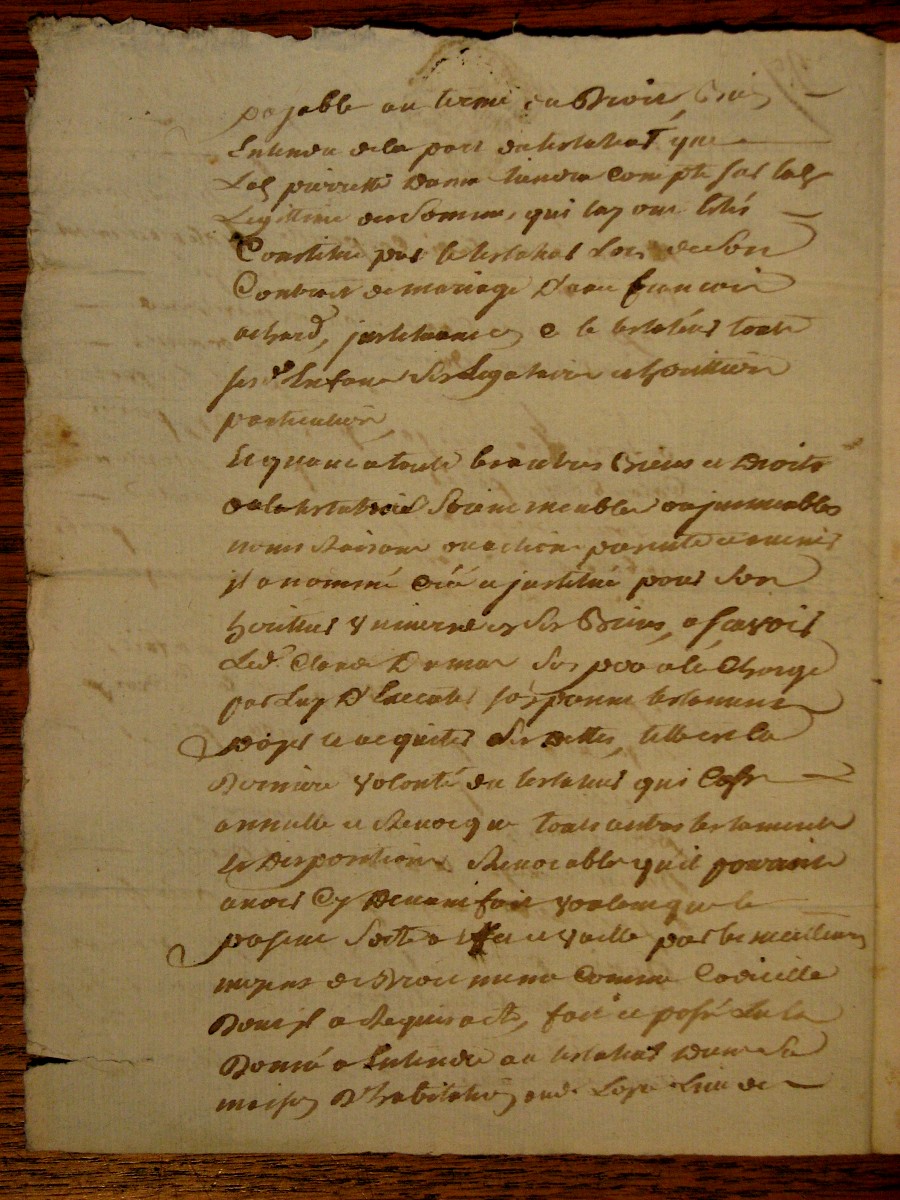 payable au terme du Droit, Bien
Entendu de la part du testateur que
Lad pierrette Duma tiendra Compte sur lad
Legittime des Sommes qui luy ont Estés
Constitué par le testateur Lors de Son
Contract de mariage Avec francois
achard, justituant le testateur touts
sesd Enfans Ses Legataires et heritiers
particuliers,
Et quant a touts les autres Biens et Droits
dud testateur Soient meubles ou jmmeubles
noms Raisons ou actions presents et avenir
jl a nommé Créé et justitué pour Son
heritier Universel Ses Biens, a scavoir
Led. Claude Dumas Son à la Charge
par Luy D'Executer son present testament
payer et acquiter Ses Dettes, telle est la
Derniere volonté du testateur qui Casse
annulle et Revocque touts autres testaments
Et Dispositions Revocable qu'il pourroit
avoir Cy Devant fait voulant que le
present Sorte a Effet et vaille par les meilleurs
moyens de Droit meme Comme Codicille
Dont jl a Requis acte, fait et passé Lu et
Donné a Entendre au testateur Dans Sa
maison D'habitation aud. Lieu de